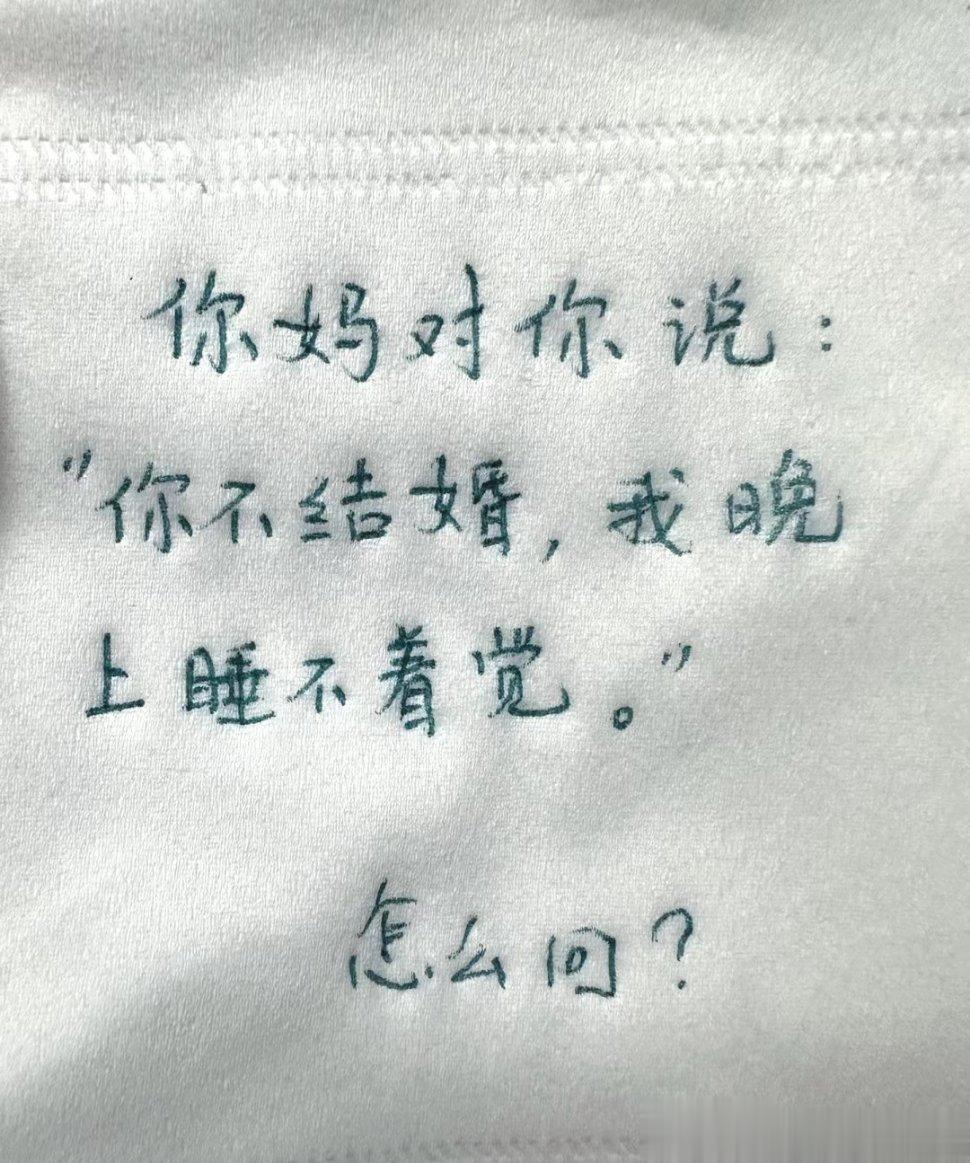 你妈对你说：
"你不结婚，我晚
上睡不着觉。"
怎么回？